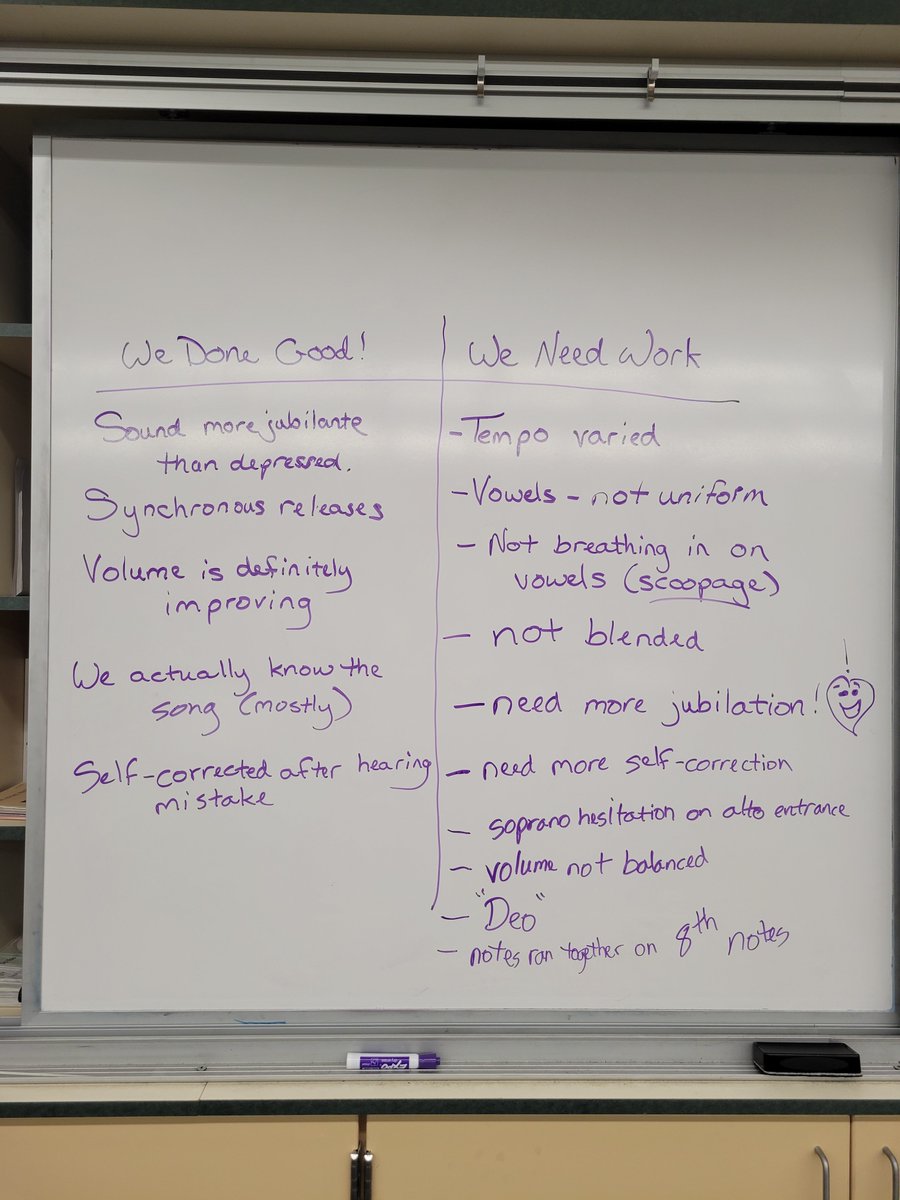 We Done Good!
Sound more jubilante
than depressed.
Synchronous releases
Volume is definitely
improving
We actually know the
song (mostly)
Self-corrected after hearing
mistake
We Need Work
- Tempo varied
- Vowels - not uniform
- Not breathing in on
vowels (scoopage)
- not blended
- need more jubilation!
- need more self-correction
- soprano hesitation on alto entrance
- volume not balanced
- "Deo"
- notes ran together on 8th notes
EXPO